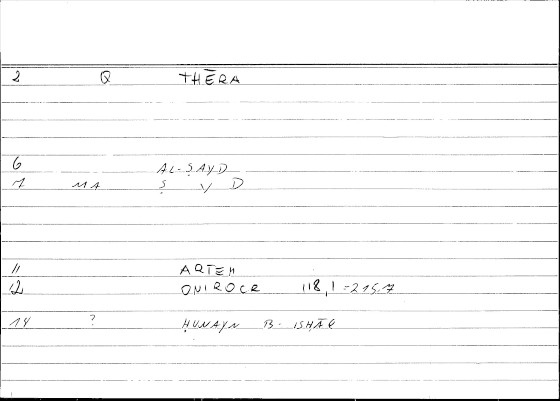 2 Q THĒRA
6 AL-ṢAYD
7 MA Ṣ Y D
11 ARTEM
12 ONIROCR 118,1 = 215,7
14 ? ḤUNAYN B. ISḤĀQ